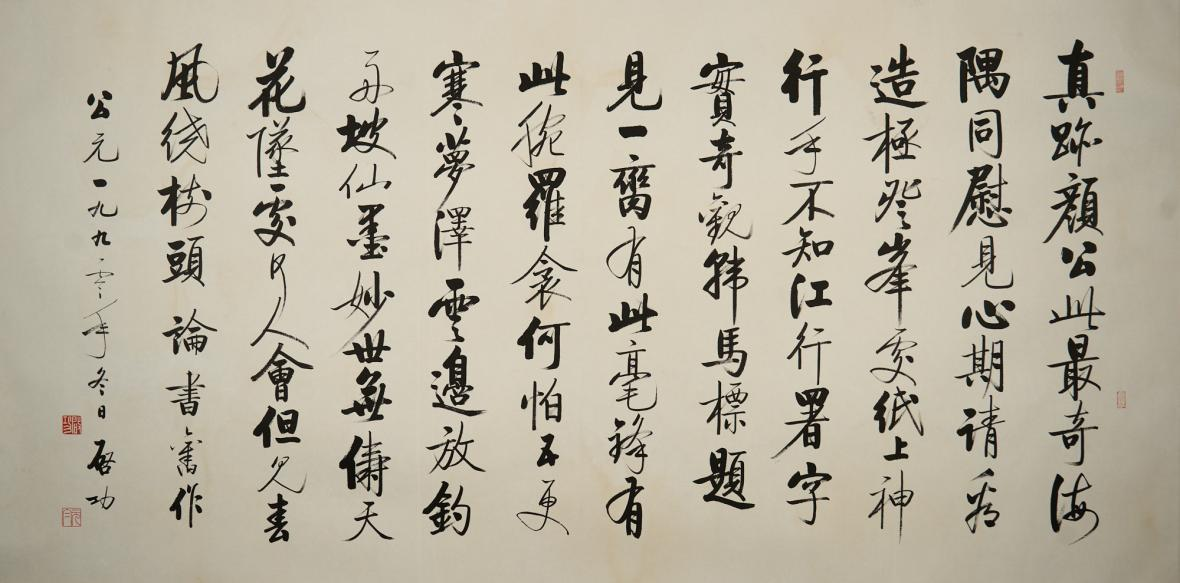 真跡顏公此最奇海
隅同慰見心期請看
造極登峯處紙上神
行手不知江行署字
實奇觀韓馬標題
見一臠有此毫鋒有
此腕羅衾何怕五更
寒夢澤雲邊放釣
舟坡仙墨妙世無儔天
花墜處何人會但見春
風繞樹頭論書舊作
公元一九九零年冬日啓功